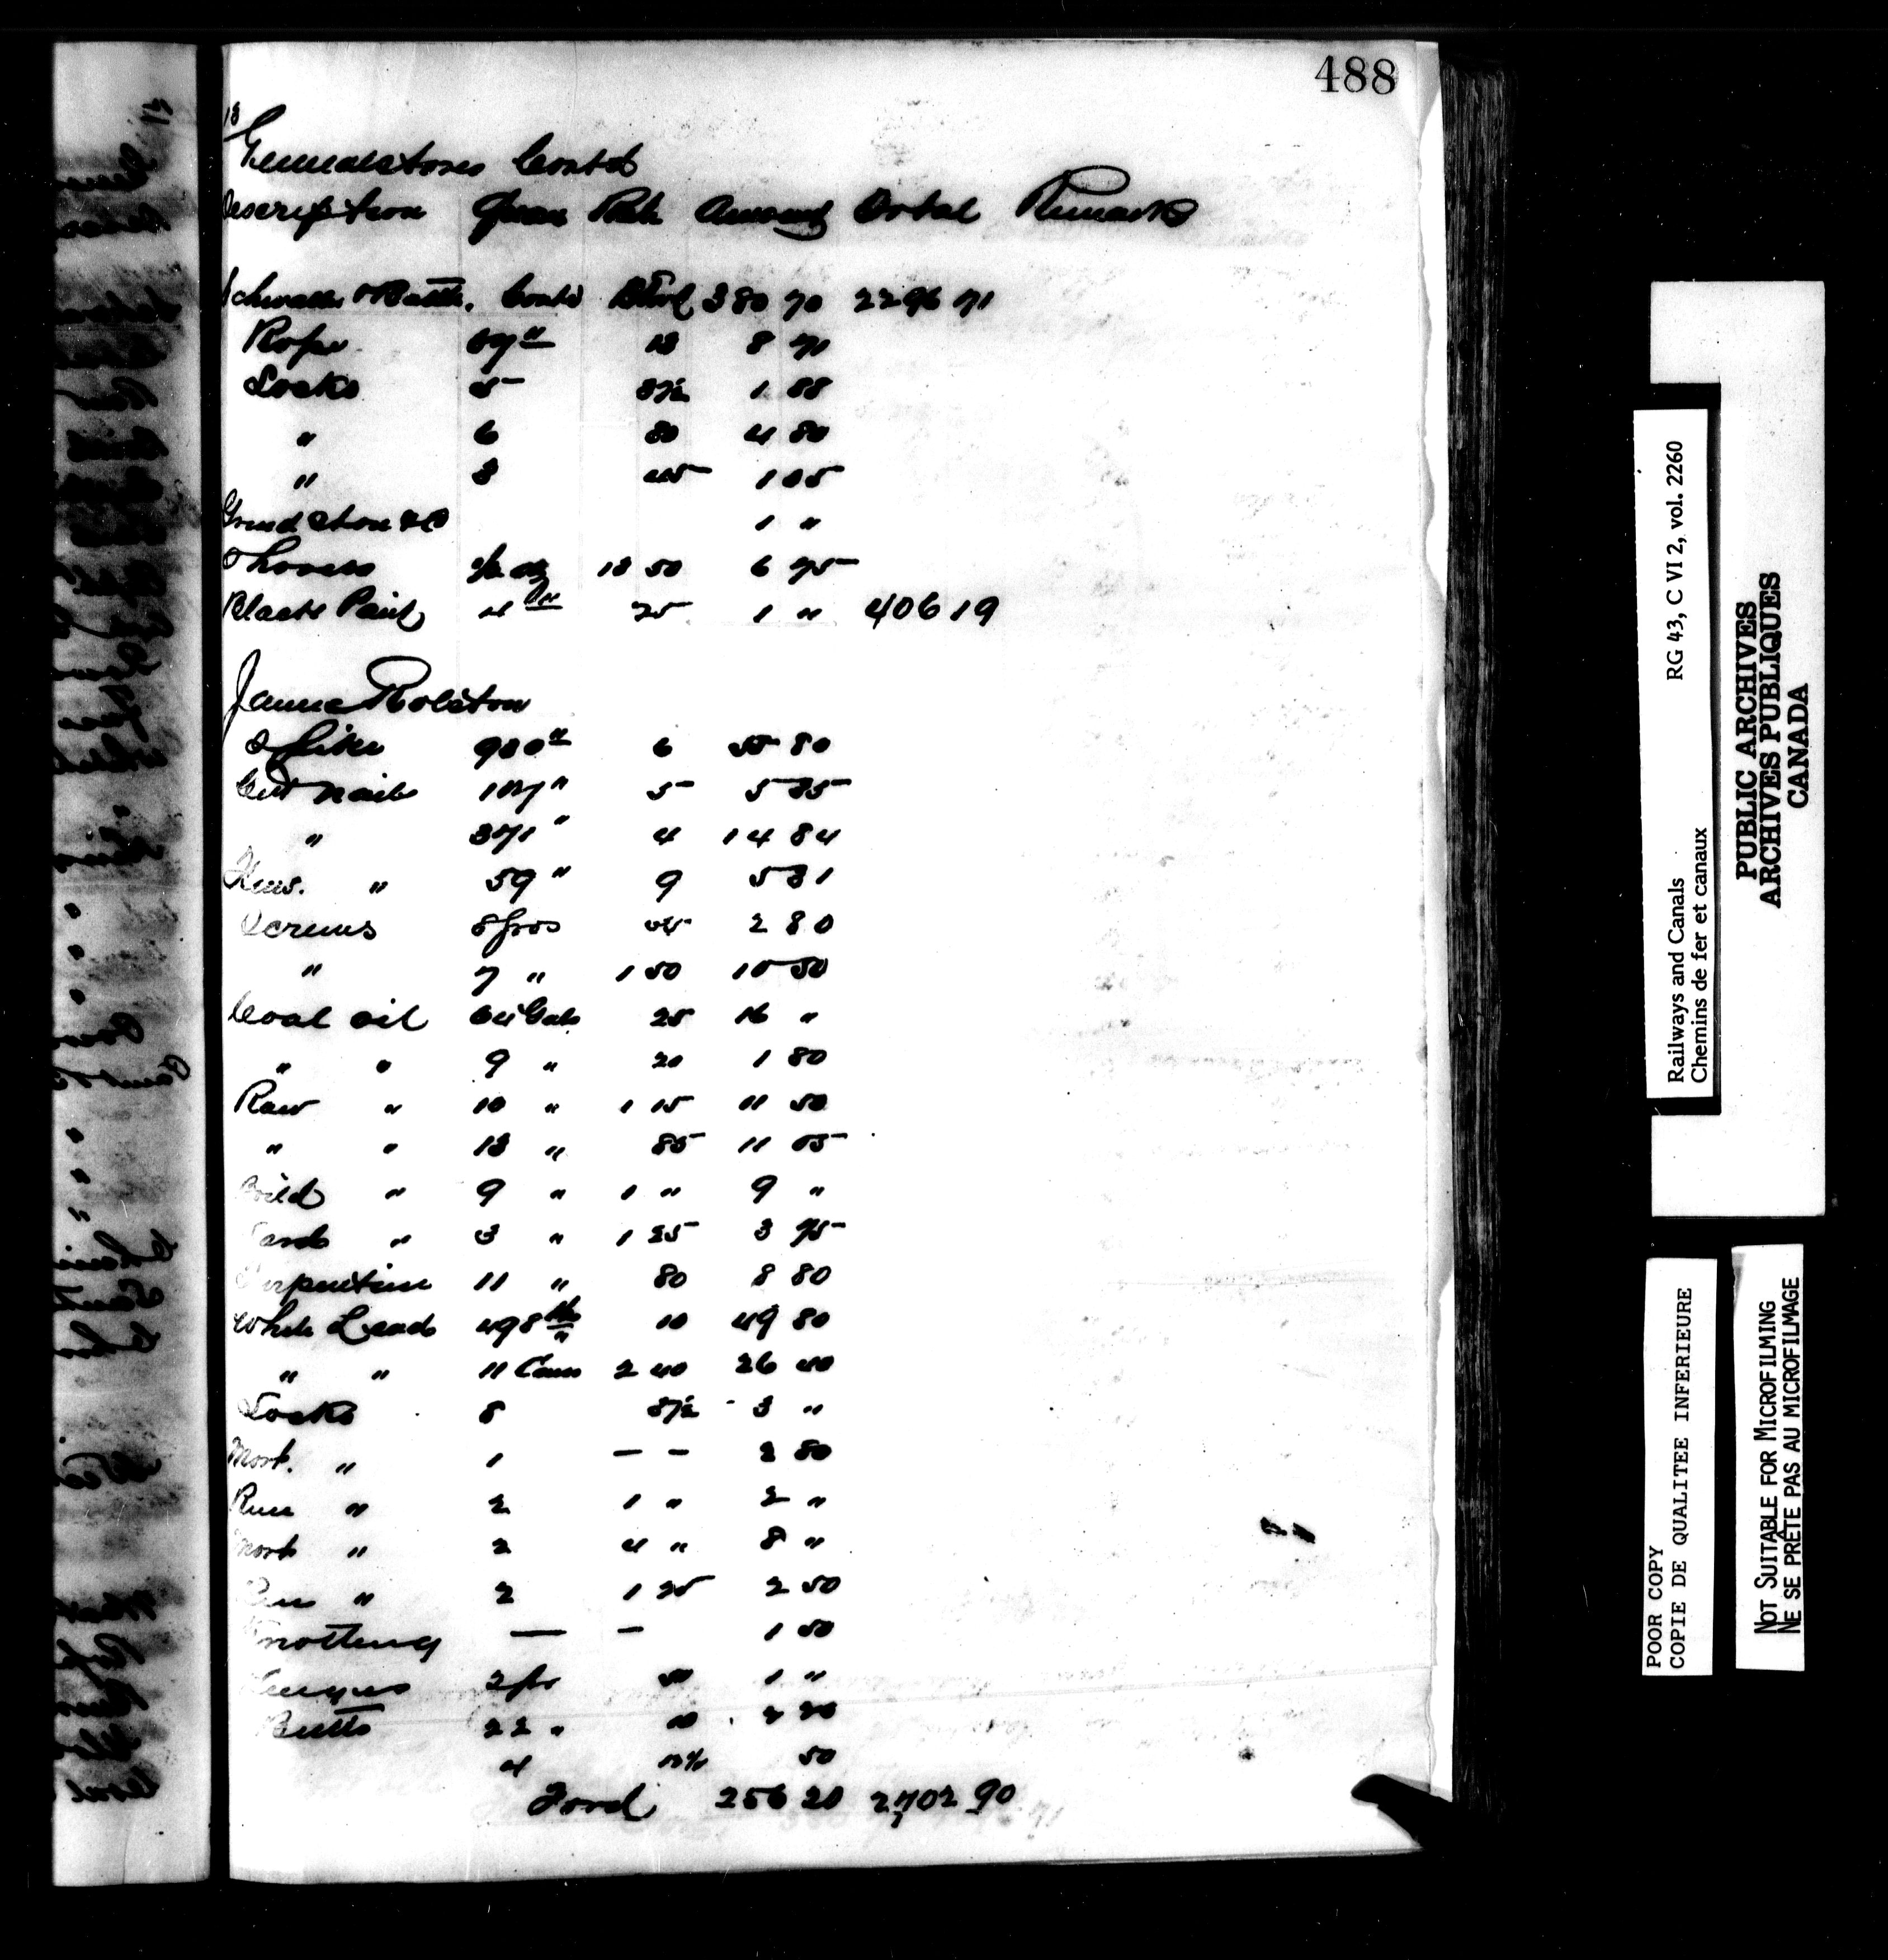 488
13
General Stores Contd
Description Quan Rate Amount Total Remarks
Contd Ford 380 70 2296 71
Rope 67 " 13 8 71
Locks 5 37½ 1 88
" 6 80 4 80
" 3 45 1 35
Grindstone 1 "
Shovels ½ doz 13 50 6 75
Black Paint 4 " 25 1 " 406 19
James Rolston
Spike 930 " 6 55 80
Cut nails 107 " 5 5 35
" 371 " 4 14 84
" 59 " 9 5 31
Screws 8 gros 35 2 80
" 7 " 1 50 10 50
Coal oil 64 Gals 25 16 "
" " 9 " 20 1 80
Raw " 10 " 1 15 11 50
" " 13 " 85 11 05
Boild " 9 " 1 " 9 "
Lard " 3 " 1 25 3 75
Turpentine 11 " 80 8 80
White Lead 498 lbs 10 49 80
" " 11 Cans 2 40 26 40
Locks 8 37½ 3 "
Mort. " 1 — — 2 80
Rim " 2 1 " 2 "
Mort " 2 4 " 8 "
Rim " 2 1 25 2 50
Knotting — — 1 50
Hinges 2 pr 50 1 "
Butts 22 " 10 2 20
4 12½ 50
Ford 256 20 2,702 90
RG 43, C VI 2, vol. 2260
Railways and Canals
Chemins de fer et canaux
PUBLIC ARCHIVES
ARCHIVES PUBLIQUES
CANADA
POOR COPY
COPIE DE QUALITEE INFERIEURE
NOT SUITABLE FOR MICROFILMING
NE SE PRÊTE PAS AU MICROFILMAGE